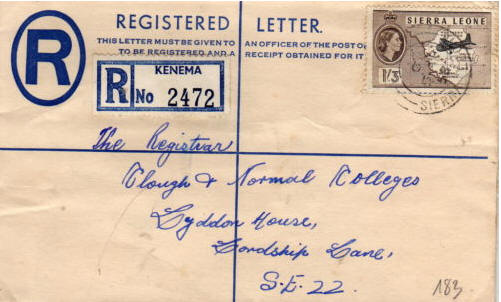 REGISTERED LETTER.
THIS LETTER MUST BE GIVEN TO AN OFFICER OF THE POST OF
TO BE REGISTERED AND A RECEIPT OBTAINED FOR IT
R
SIERRA LEONE
1/3
SIERR
KENEMA
R No 2472
The Registrar
Clough & Normal Colleges
Lyddon House,
Lordship Lane,
S.E. 22.
183.